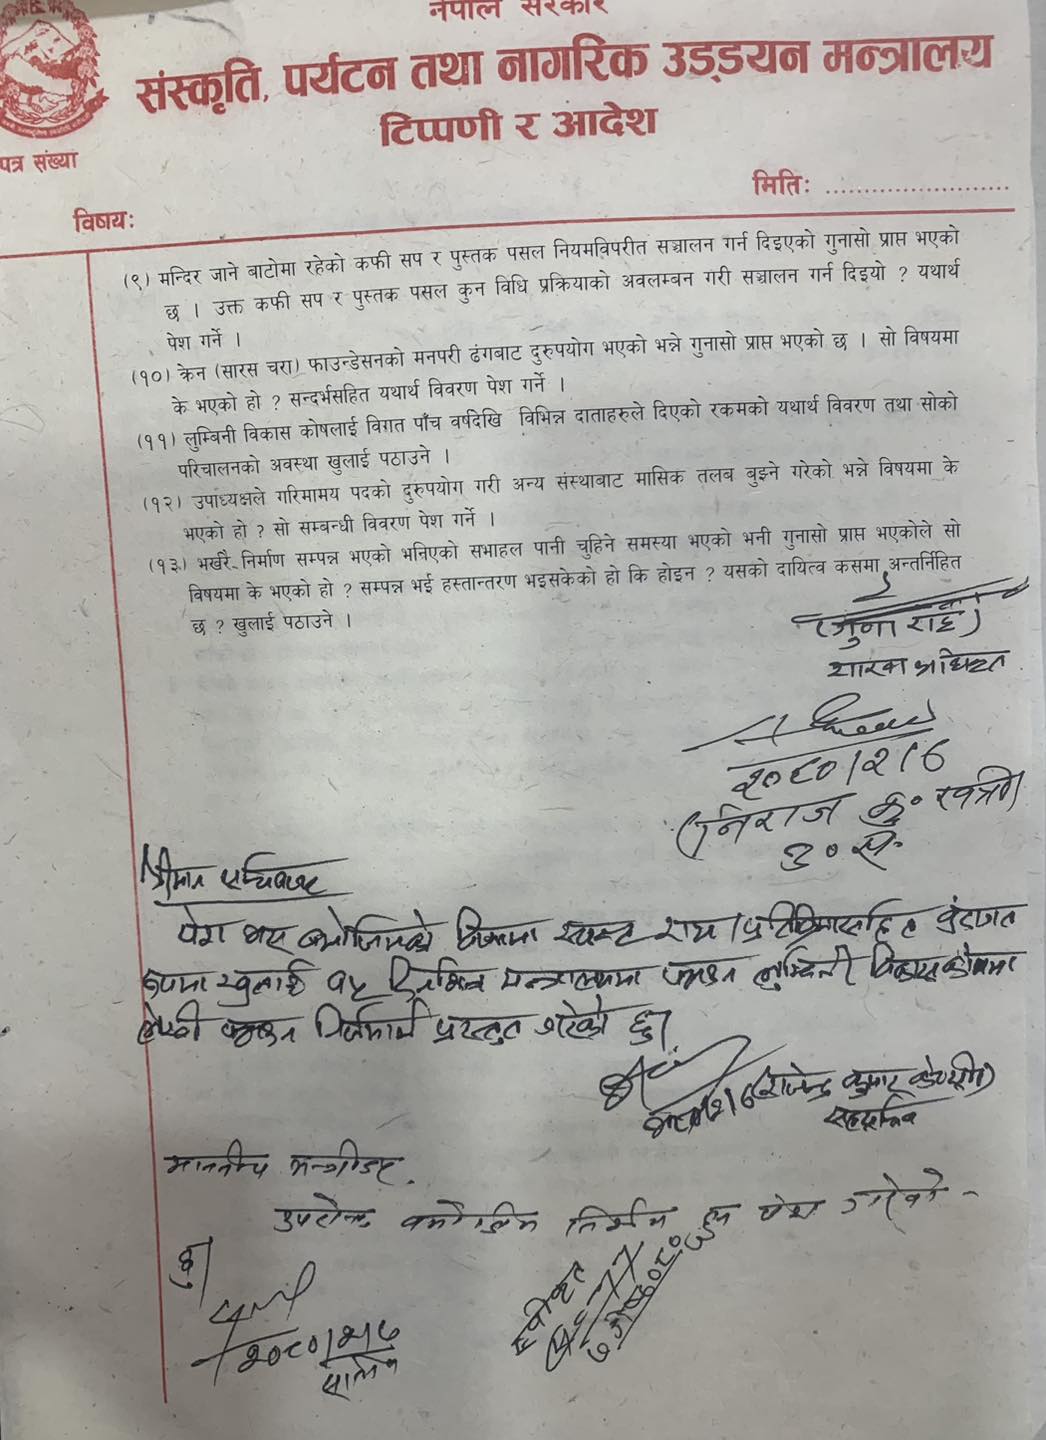 नेपाल सरकार
संस्कृति, पर्यटन तथा नागरिक उड्डयन मन्त्रालय
टिप्पणी र आदेश
पत्र संख्या
मितिः ........................
विषयः
(९) मन्दिर जाने बाटोमा रहेको कफी सप र पुस्तक पसल नियमविपरीत सञ्चालन गर्न दिइएको गुनासो प्राप्त भएको
छ । उक्त कफी सप र पुस्तक पसल कुन विधि प्रक्रियाको अवलम्बन गरी सञ्चालन गर्न दिइयो ? यथार्थ
पेश गर्ने ।
(१०) क्रेन (सारस चरा) फाउन्डेसनको मनपरी ढंगबाट दुरुपयोग भएको भन्ने गुनासो प्राप्त भएको छ । सो विषयमा
के भएको हो ? सन्दर्भसहित यथार्थ विवरण पेश गर्ने ।
(११) लुम्बिनी विकास कोषलाई विगत पाँच वर्षदेखि विभिन्न दाताहरुले दिएको रकमको यथार्थ विवरण तथा सोको
परिचालनको अवस्था खुलाई पठाउने ।
(१२) उपाध्यक्षले गरिमामय पदको दुरुपयोग गरी अन्य संस्थाबाट मासिक तलब बुझ्ने गरेको भन्ने विषयमा के
भएको हो ? सो सम्बन्धी विवरण पेश गर्ने ।
(१३) भर्खरै निर्माण सम्पन्न भएको भनिएको सभाहल पानी चुहिने समस्या भएको भनी गुनासो प्राप्त भएकोले सो
विषयमा के भएको हो ? सम्पन्न भई हस्तान्तरण भइसकेको हो कि होइन ? यसको दायित्व कसमा अन्तर्निहित
छ ? खुलाई पठाउने ।
शाखा अधिकृत
२०८०/२/८
(निराज कु० खत्री)
उ०स०
श्रीमान सचिवज्यू
पेश भए बमोजिमको विषयमा स्पष्ट राय/प्रतिक्रियासहित बुंदागत
रुपमा खुलाई १५ दिनभित्र मन्त्रालयमा पठाउन लुम्बिनी विकास कोषमा
लेखी पठाउन निर्णयार्थ प्रस्तुत गरेको छु।
सहसचिव
माननीय मन्त्रीज्यू,
उपरोक्त बमोजिम निर्णय हुन पेश गरेको
छु।
सचिव
स्वीकृत